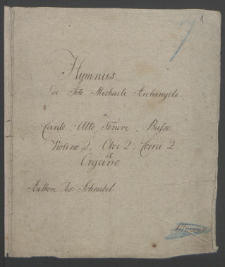 Hymnus
de Sto Michaele Archangelo
a
Canto, Alto, Tenore, Basso
Violino 2. Oboi 2. Corni 2
et
Organo
Author Jos Schnabel